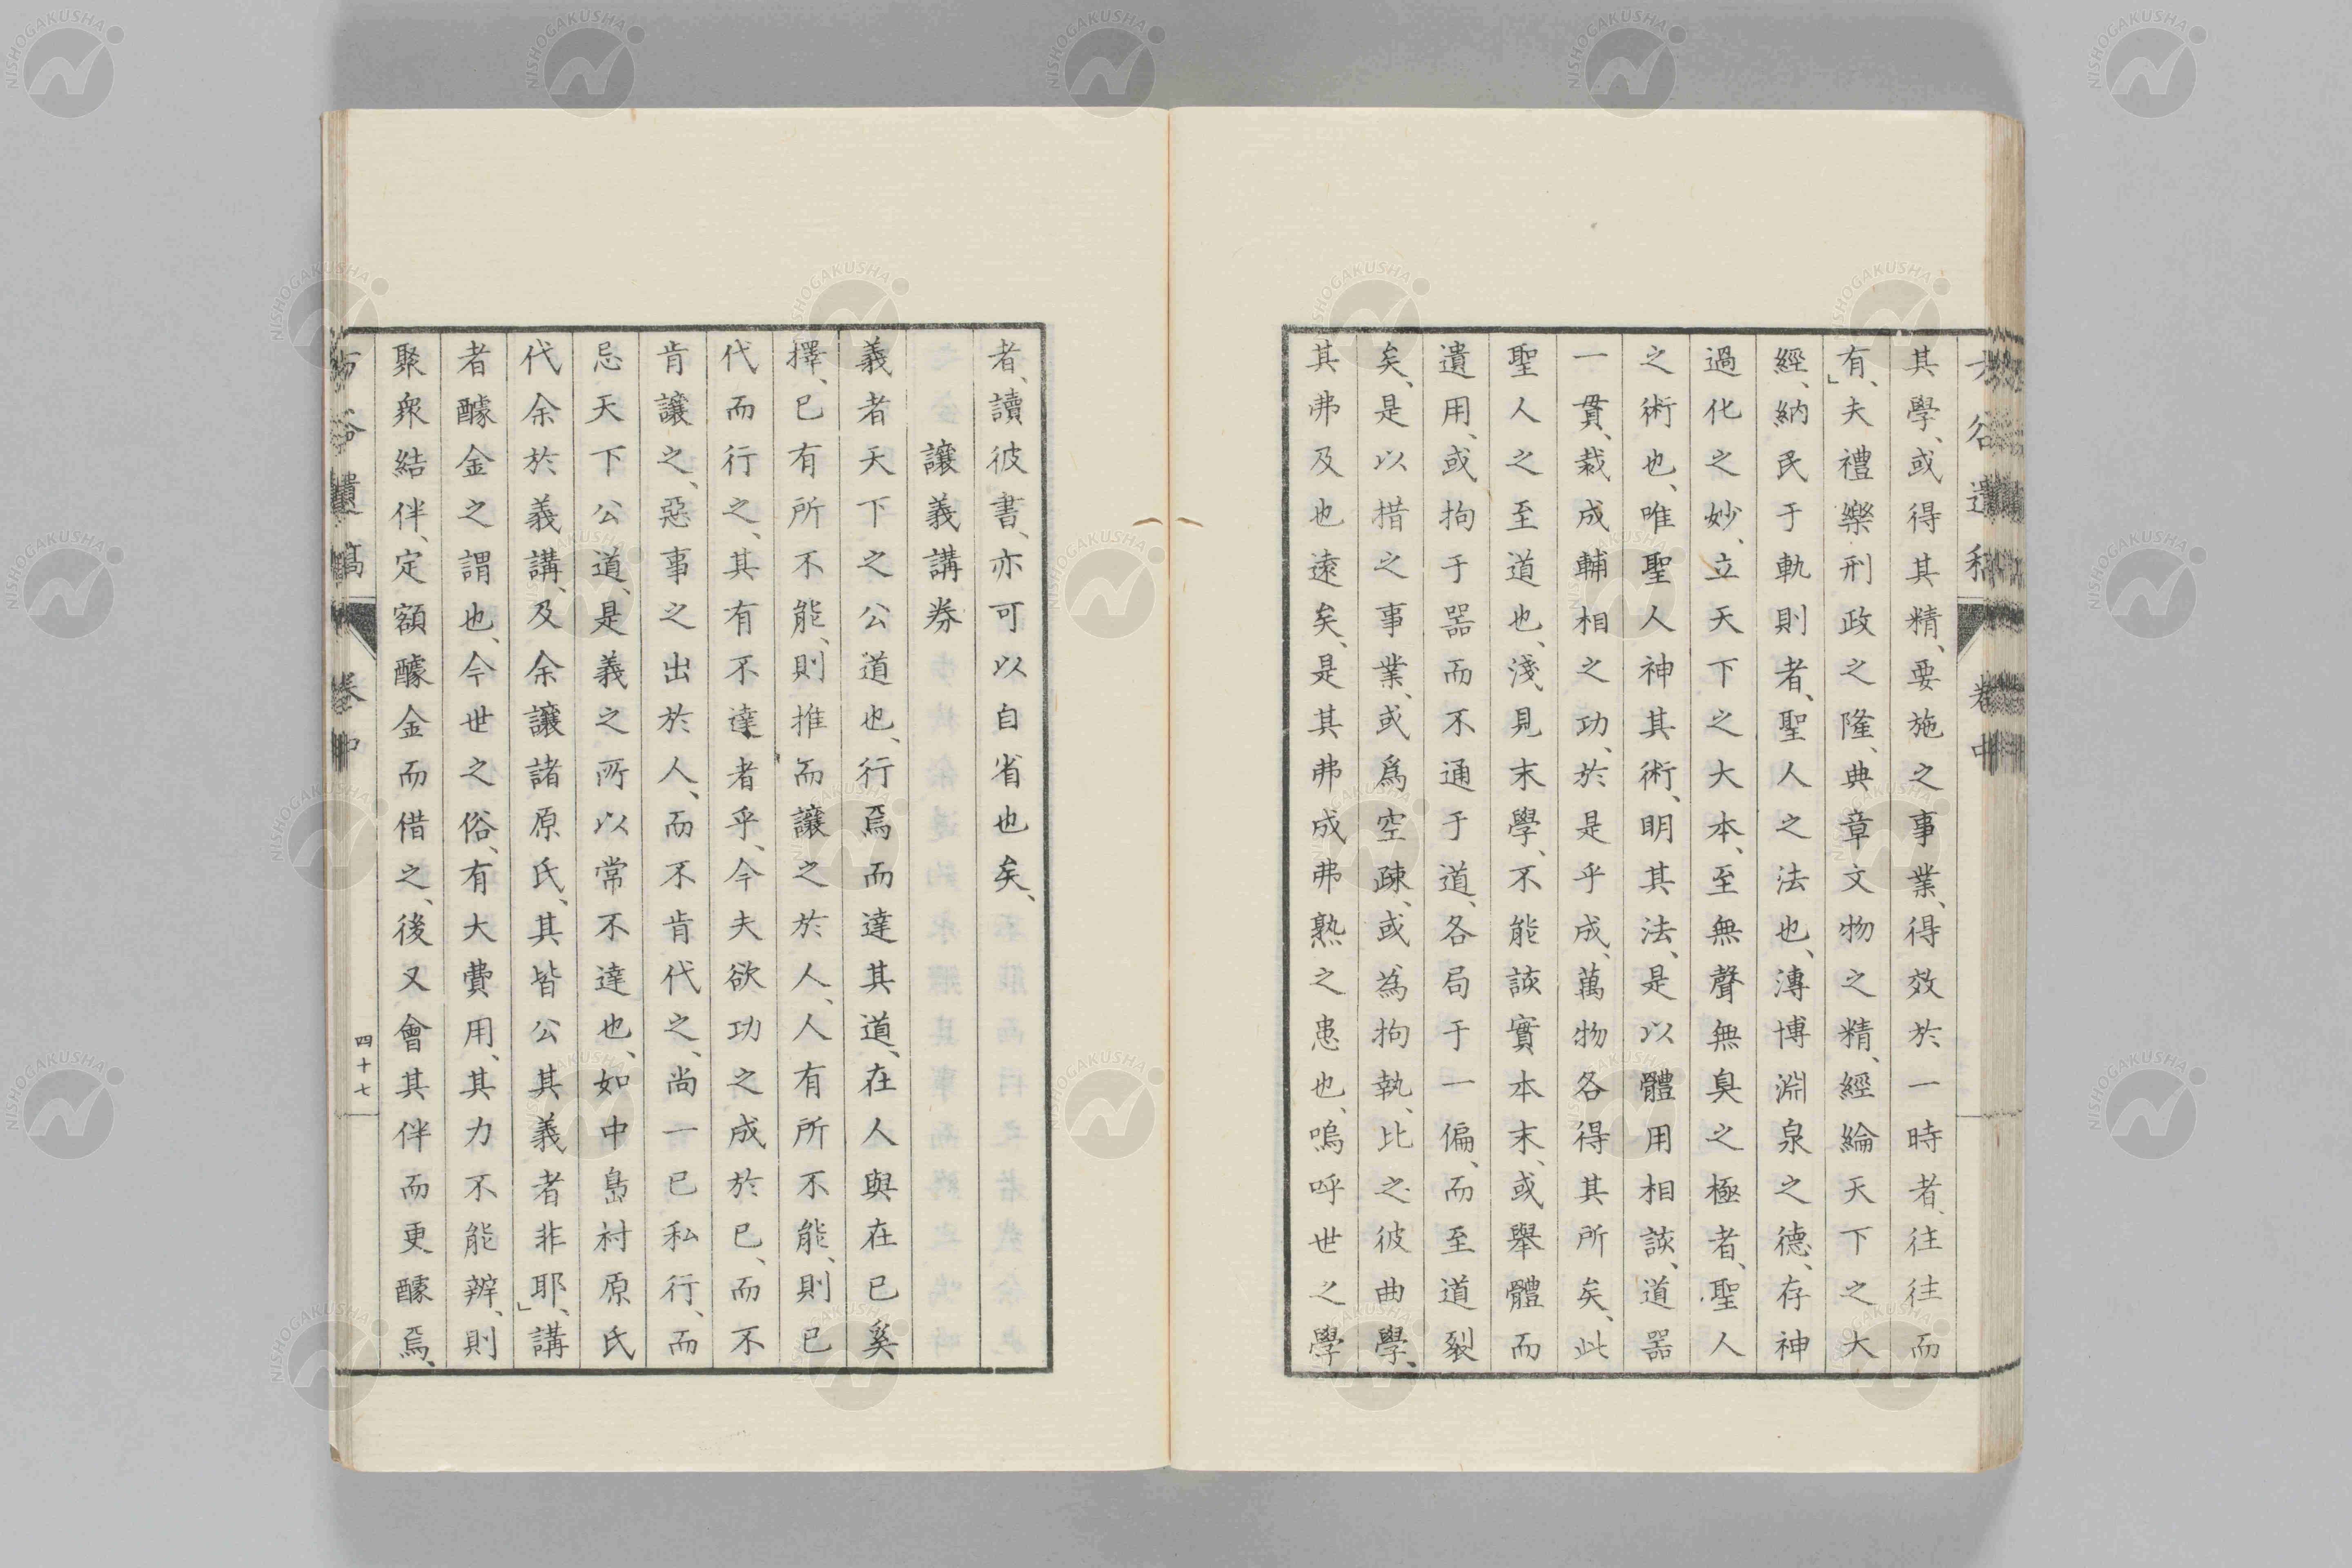 其學、或得其精、要施之事業、得效於一時者、往往而
有、」夫禮樂刑政之隆、典章文物之精、經綸天下之大
經、納民于軌則者、聖人之法也、溥博淵泉之德、存神
過化之妙、立天下之大本、至無聲無臭之極者、聖人
之術也、唯聖人神其術、明其法、是以體用相該、道器
一貫、裁成輔相之功、於是乎成、萬物各得其所矣、此
聖人之至道也、淺見末學、不能該實本末、或舉體而
遺用、或拘于器而不通于道、各局于一偏、而至道裂
矣、是以措之事業、或爲空疎、或為拘執、比之彼曲學、
其弗及也遠矣、是其弗成弗熟之患也、嗚呼世之學
者、讀彼書、亦可以自省也矣、
讓義講券
義者天下之公道也、行焉而達其道、在人與在已奚
擇、已有所不能、則推而讓之於人、人有所不能、則已
代而行之、其有不達者乎、今夫欲功之成於已、而不
肯讓之、惡事之出於人、而不肯代之、尚一已私行、而
忌天下公道、是義之所以常不達也、如中島村原氏
代余於義講、及余讓諸原氏、其皆公其義者非耶、」講
者醵金之謂也、今世之俗、有大費用、其力不能辨、則
聚衆結伴、定額醵金而借之、後又會其伴而更醵焉、
方谷遺稿 卷中 四十七